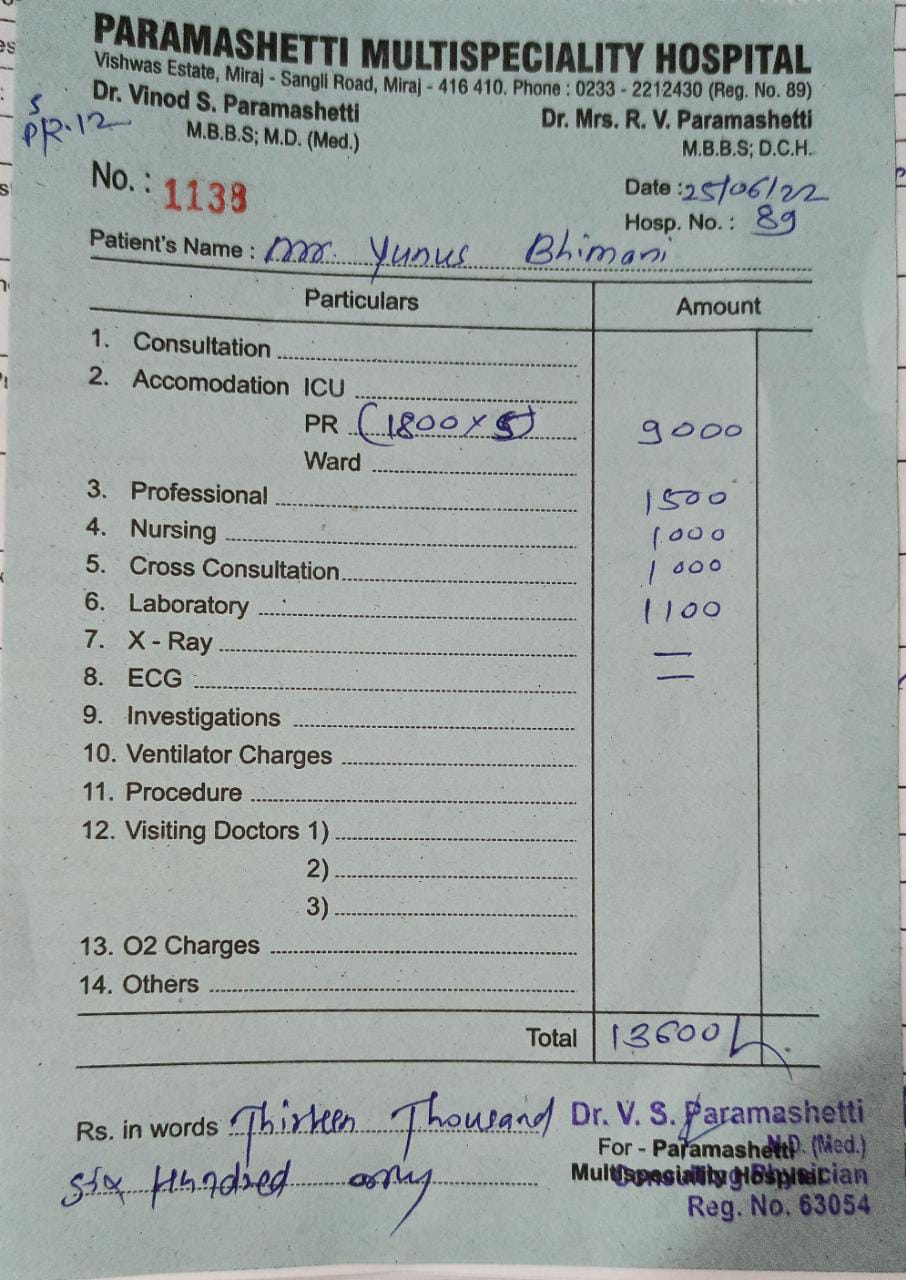 PARAMASHETTI MULTISPECIALITY HOSPITAL
Vishwas Estate, Miraj - Sangli Road, Miraj - 416 410. Phone : 0233 - 2212430 (Reg. No. 89)
Dr. Vinod S. Paramashetti Dr. Mrs. R. V. Paramashetti
M.B.B.S; M.D. (Med.) M.B.B.S; D.C.H.
S
PR.12
No. : 1138 Date : 25/06/22
Hosp. No. : 89
Patient's Name : Mr. Yunus Bhimani
Particulars Amount
1. Consultation
2. Accomodation ICU
PR (1800 x 5) 9000
Ward
3. Professional 1500
4. Nursing 1000
5. Cross Consultation 1000
6. Laboratory 1100
7. X - Ray —
8. ECG —
9. Investigations
10. Ventilator Charges
11. Procedure
12. Visiting Doctors 1)
2)
3)
13. O2 Charges
14. Others
Total 13600/-
Rs. in words Thirteen Thousand Dr. V. S. Paramashetti
For - Paramashetti M.D. (Med.)
six Hundred only Multispeciality Hospital
Reg. No. 63054